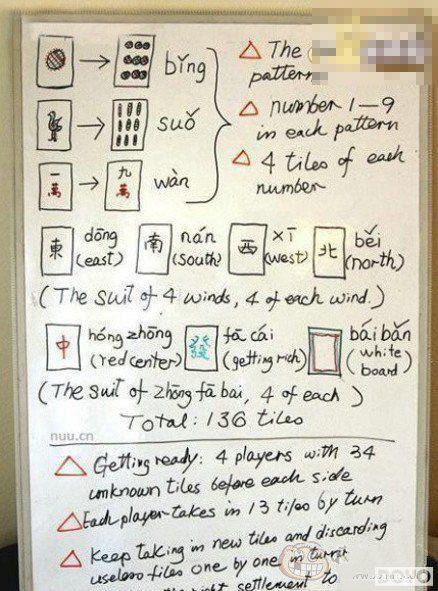 bǐng
△ The
pattern
suǒ
△ number 1—9
in each pattern
一萬 → 九萬 wàn
△ 4 tiles of each
number
東 dōng (east) 南 nán (south) 西 xī (west) 北 běi (north)
(The suit of 4 winds, 4 of each wind.)
中 hóng zhōng (red center) 發 fā cái (getting rich) bái bǎn (white board)
(The suit of zhōng fā bai, 4 of each)
Total: 136 tiles
nuu.cn
△ Getting ready: 4 players with 34
unknown tiles before each side
△ Each player takes in 13 tiles by turn
△ Keep taking in new tiles and discarding
useless tiles one by one in turn
the right settlement to